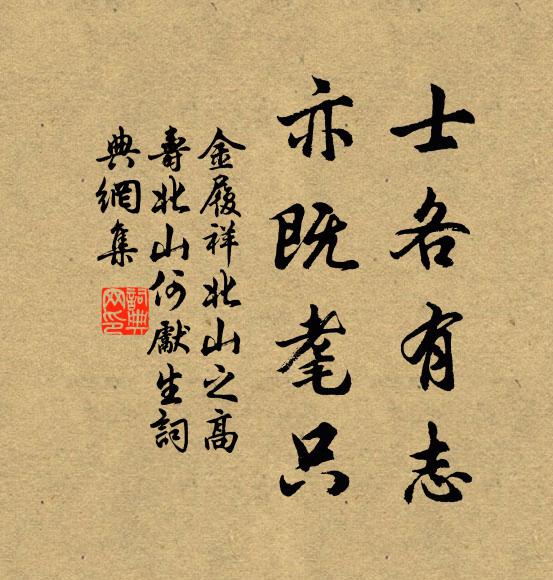 士各有志
亦既耄只
金履祥北山之高
壽北山何獻生詞
典網集
詞典
网印